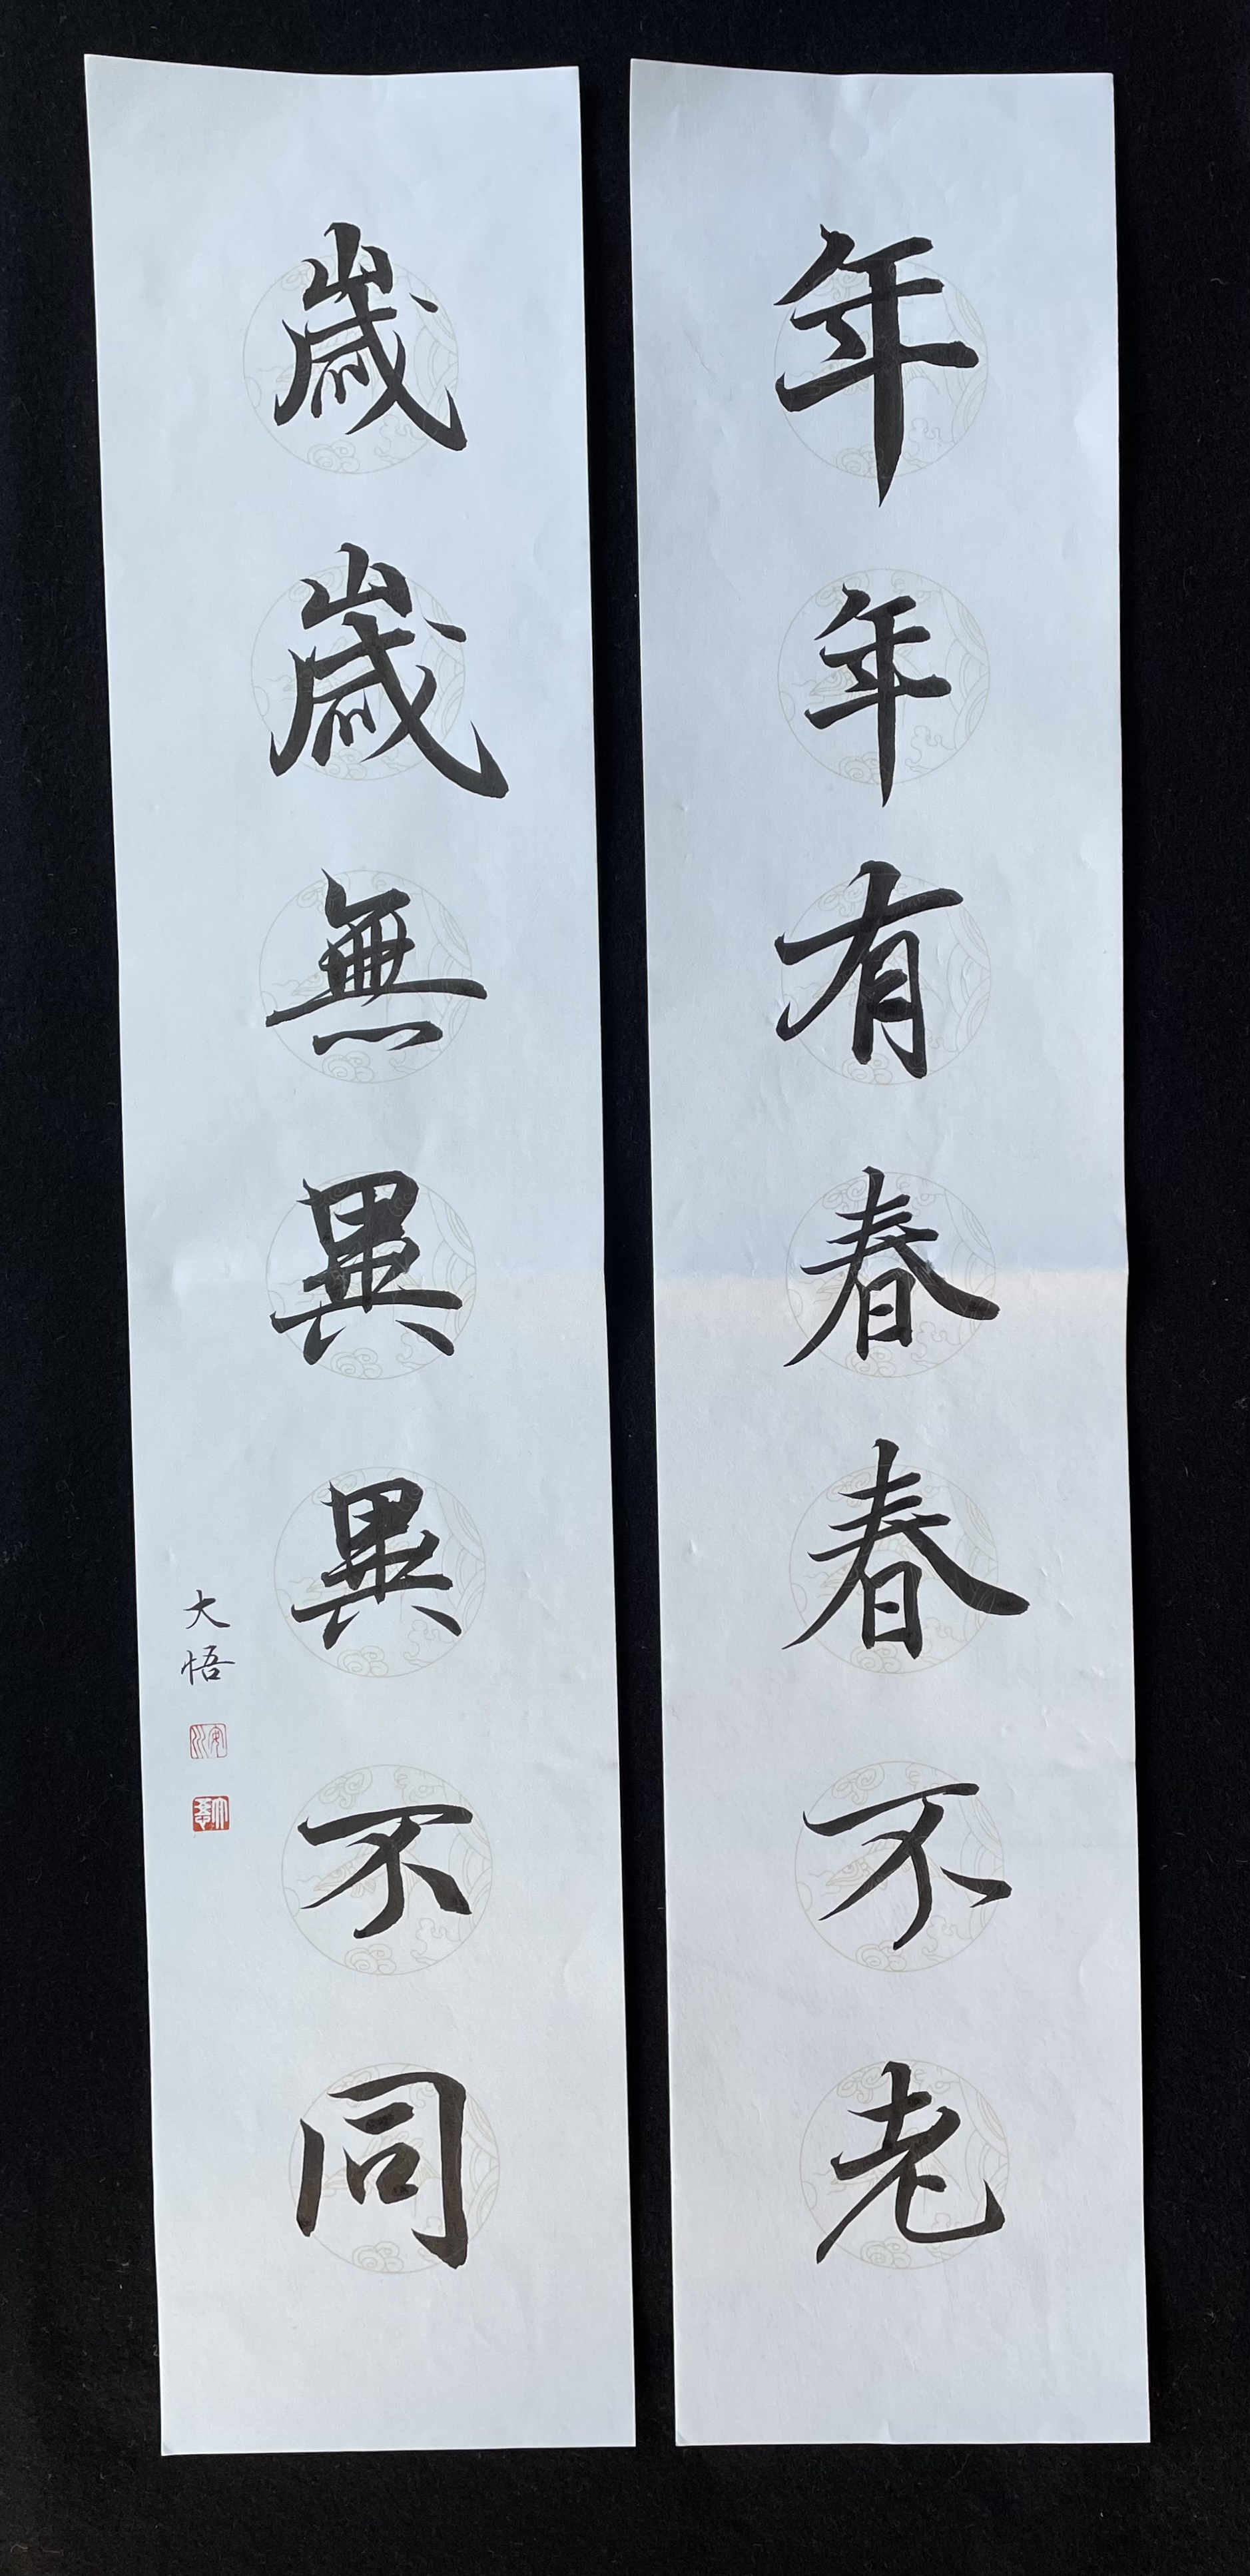 年年有春春不老
歲歲無異異不同
大悟
安川
大悟